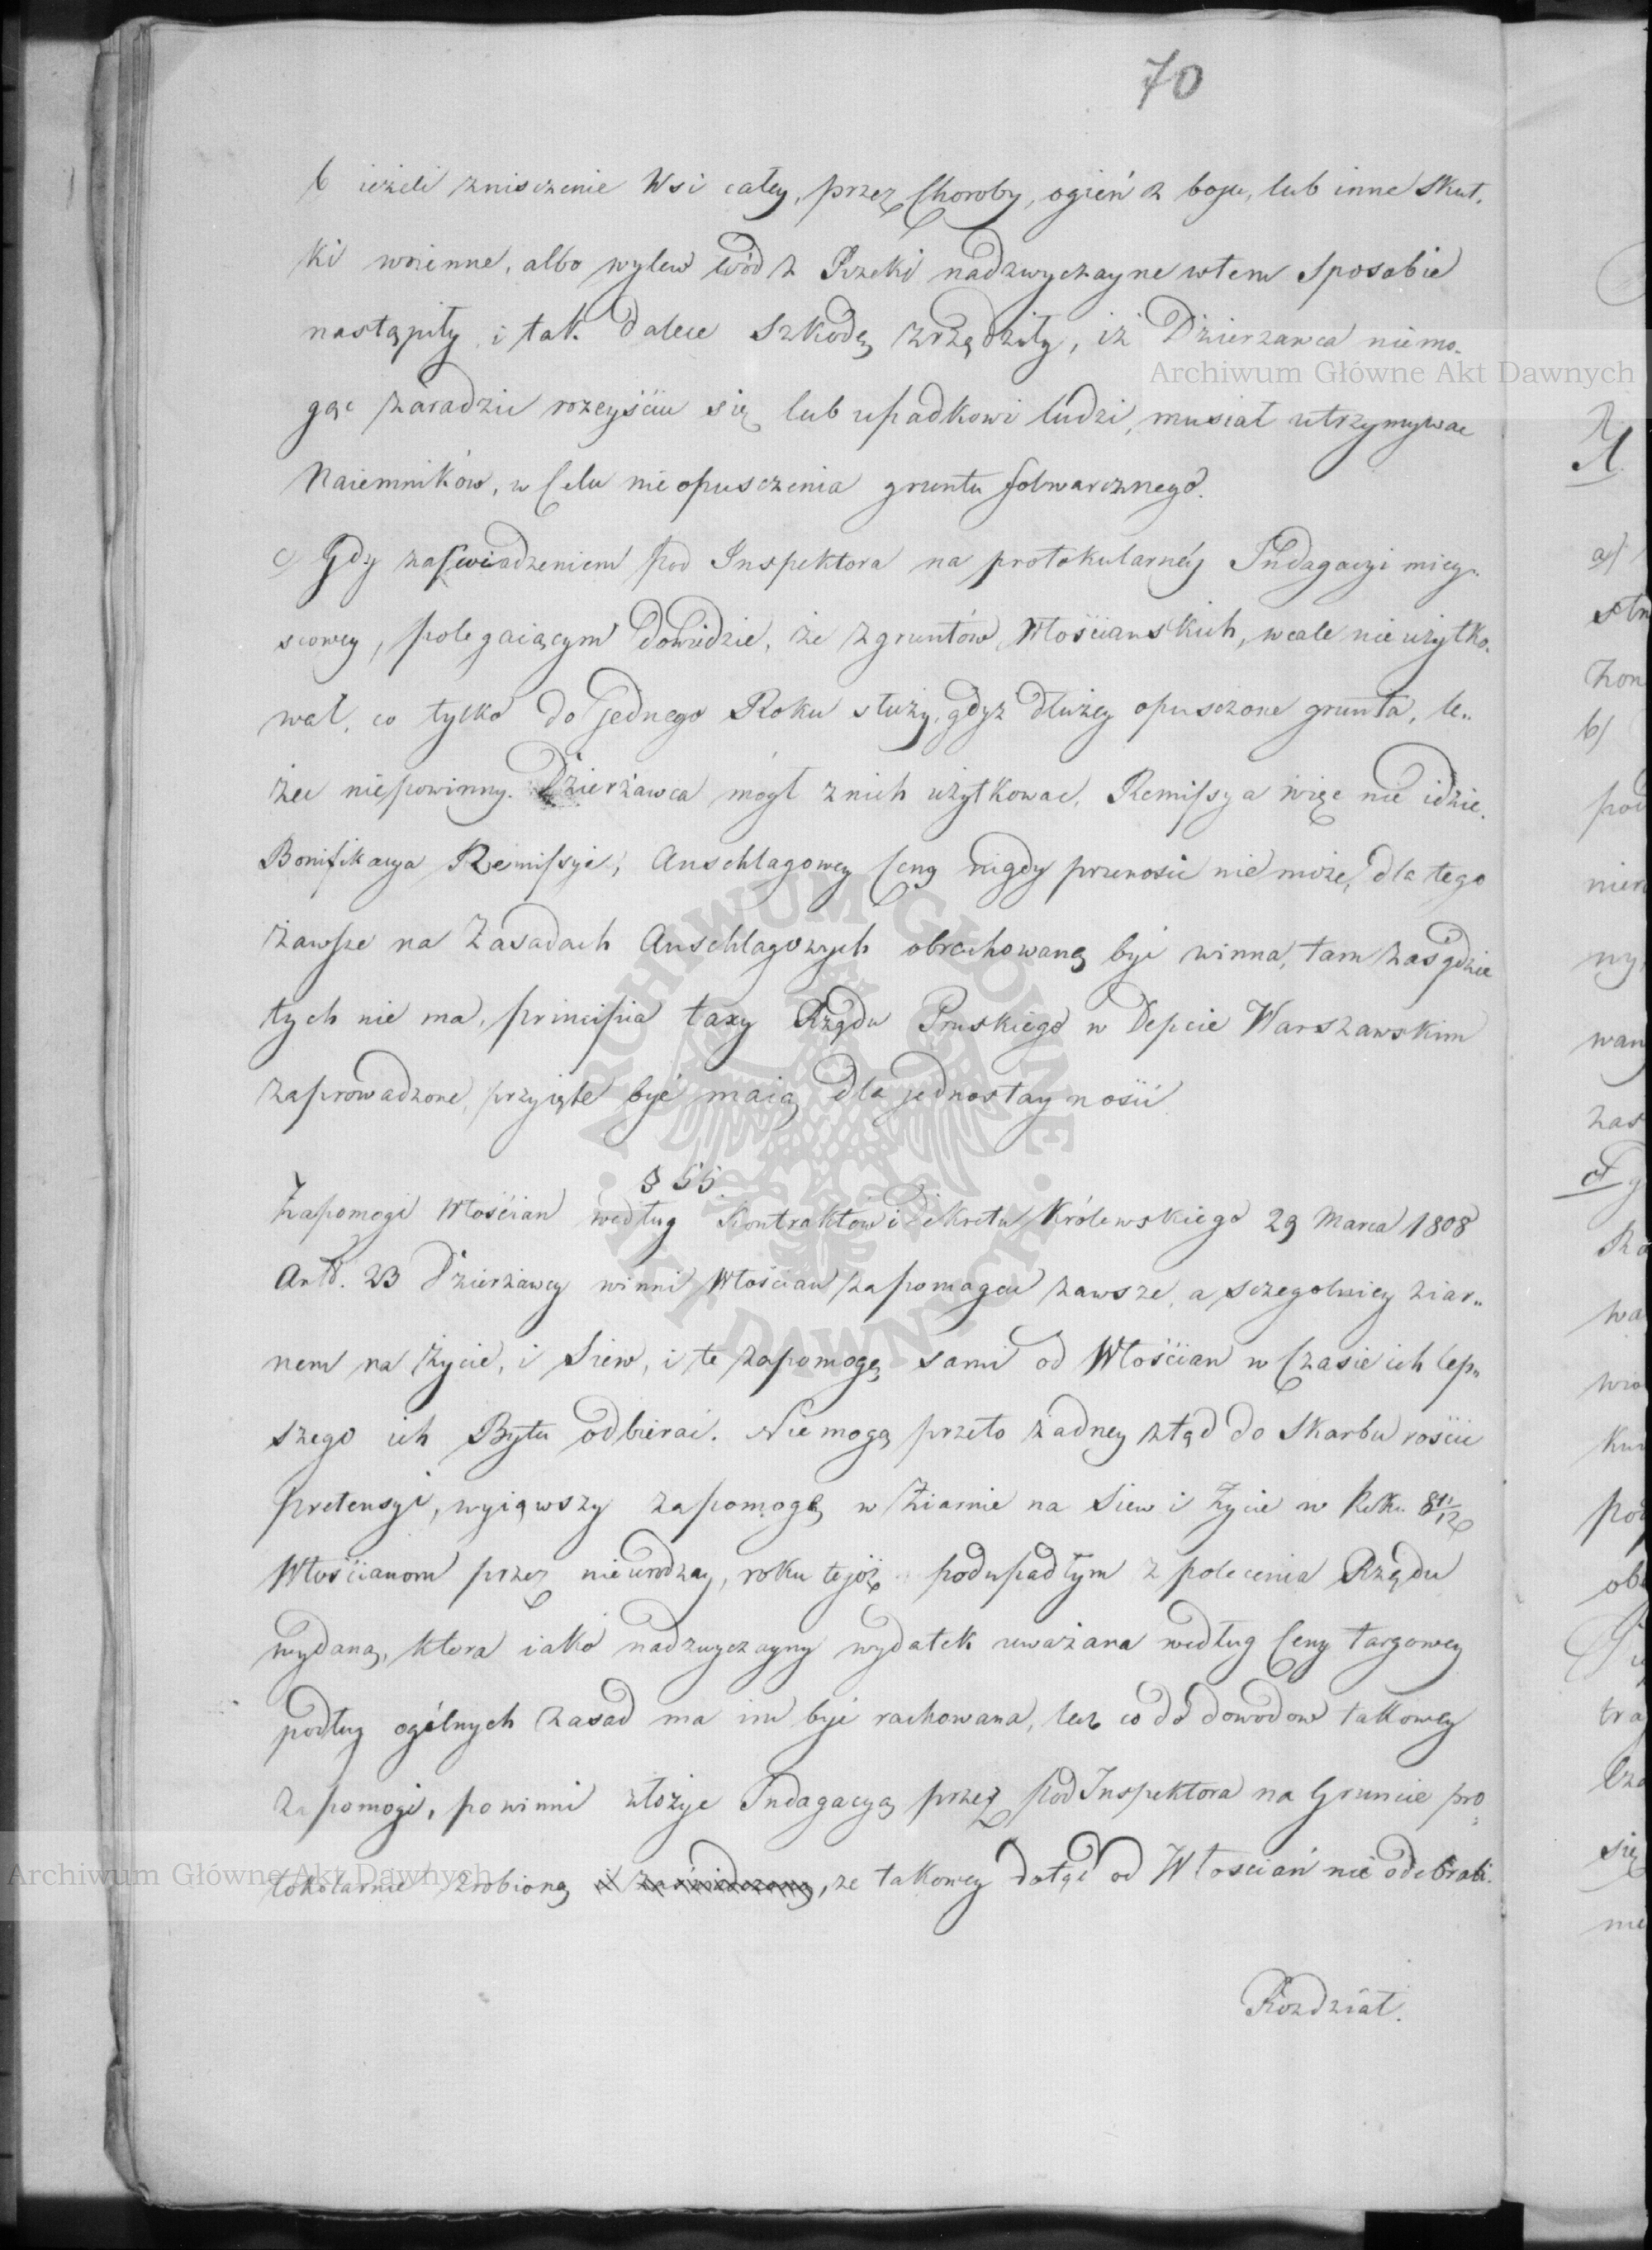 70
b ieżeli znisczenie Wsi całey, przez Choroby, ogień z boju, lub inne Skut,
ki woienne, albo wylew wód z Rzeki nadzwyczayne wtem Sposobie
nastąpiły i tak dalece Szkodę zrządziły, iż Dzierzawca niemo-
gąc zaradzić rozeyściu się lub upadkowi ludzi, musiał utrzymywac
Naiemników, w Celu nieopusczenia gruntu folwarcznego.
c) Gdy zaświadzeniem pod Inspektora na protokularnéy Indagacyi miey-
scowey, polegaiącym dowiedzie, że z gruntów Włościanskich, wcale nie użytko-
wał, co tylko do jednego Roku służy, gdyz dłużey opusczone grunta, le-
żec niepowinny. Dzierżawca mógł z nich użytkowac, Remissya więc nie idzie.
Bonifikacya Remissyi, Anschlagowey Ceny nigdy przenosić nie może, dla tego
zawsze na Zasadach Anschlagowych obrachowaną być winna, tam zaś gdzie
tych nie ma, principia taxy Rządu Pruskiego w Depcie Warszawskim
zaprowadzone, przyięte być maią dla jednostayności
§ 55
Zapomogi Włościan według Kontraktów i Dekretu Królewskiego 29 Marca 1808
Artd. 23 Dzierżawcy winni Włościan zapomagać zawsze, a sczegolniey ziar-
nem na życie, i Siew, i te zapomogę sami od Włościan w Czasie ich lep-
szego ich Bytu odbierać. Nie mogą przeto żadney ztąd do Skarbu rościć
pretensyi, wyiąwszy zapomogę w Ziarnie na Siew i Życie w Roku 811/12
Włościanom przez nieurodzay, roku tejóż podupadłym z polecenia Rządu
wydaną, ktora iako nadzwyczayny wydatek uważana według Ceny targowey
podług ogólnych zasad ma im być rachowana, lecz co do dowodow takowey
zapomogi, powinni złożyc Indagacyą przez pod Inspektora na Gruncie pro-
tokolarnie zrobioną, ze takowey dotąd od Włościań nie odebrali.
Rozdział.
Archiwum Główne Akt Dawnych
Archiwum Główne Akt Dawnych
ARCHIWUM GŁÓWNE
AKT DAWNYCH